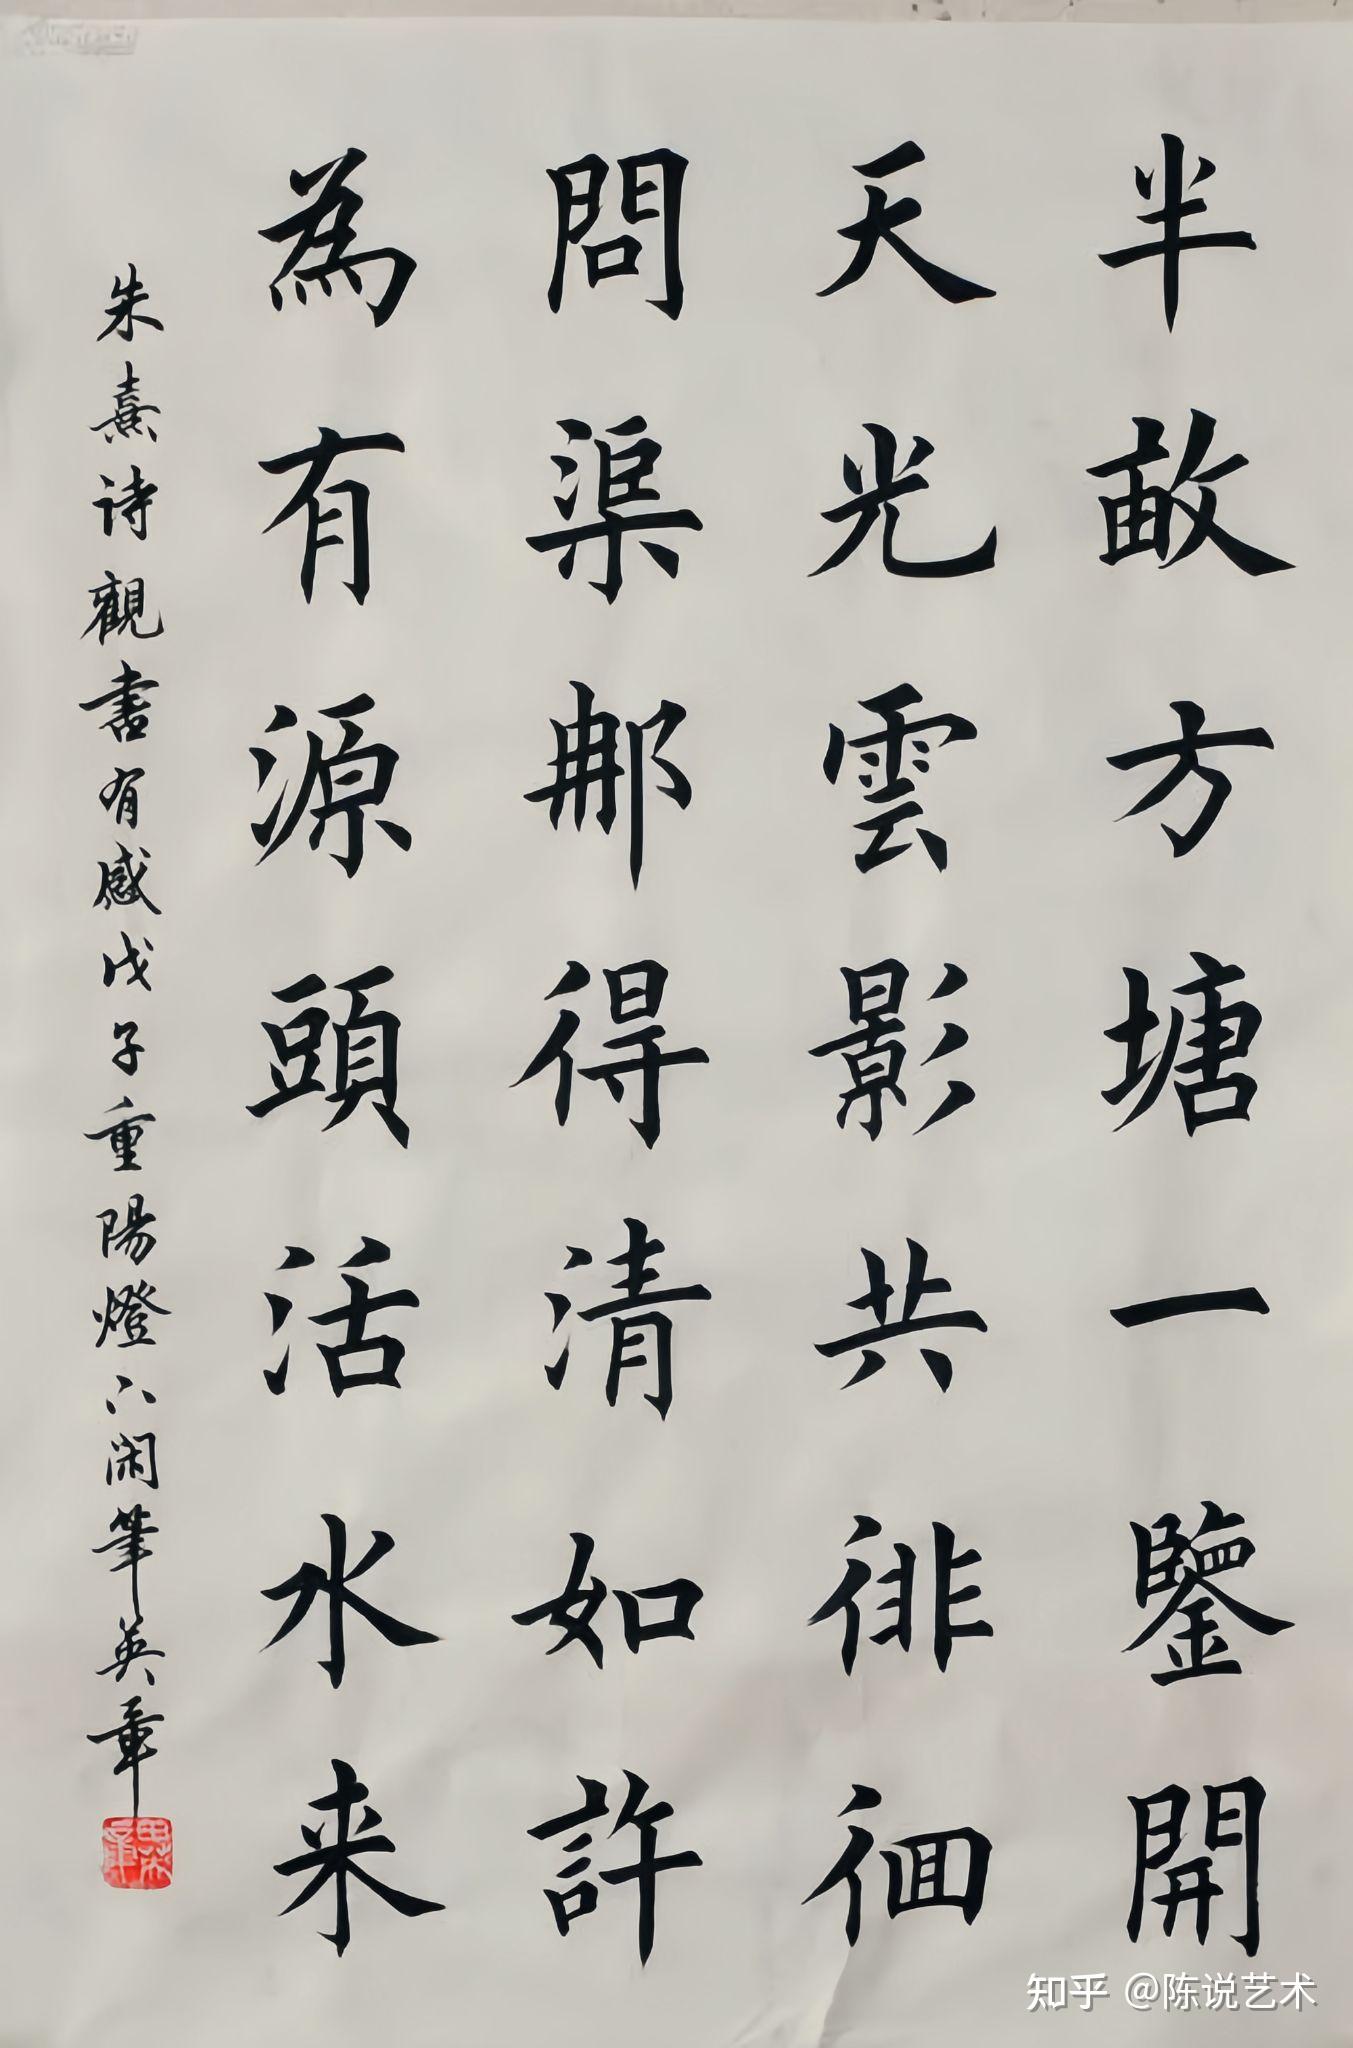 半畝方塘一鑒開
天光雲影共徘徊
問渠那得清如許
為有源頭活水来
朱熹诗觀書有感戊子重陽燈下闲筆英章
知乎 @陈说艺术